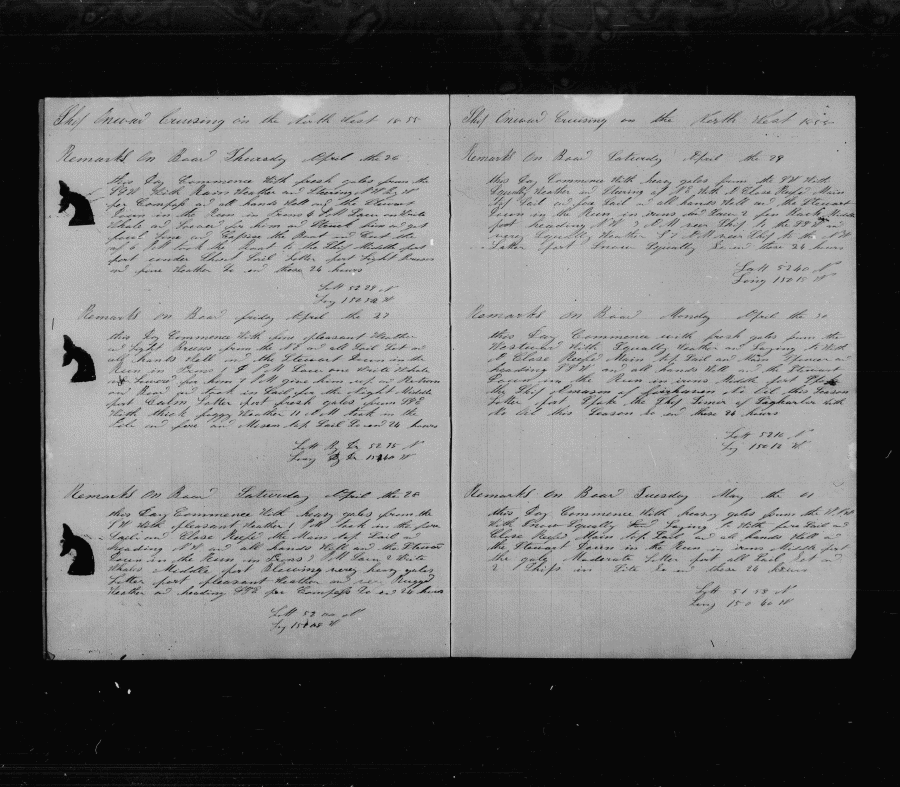 Ship Onward Cruising on the North West 1855
Remarks On Board Thursday April the 26
this Day Commence With fresh gales from the
With Rain Weather and Stering
per Compass and all hands Well and the Stewart
Down in the Run in Irons 4 PM Saw one Write
Whale and Loward for him and Struck him and got
fore and the Boat and
at 6 PM took the to the Ship Middle part
part under Short Sail Latter part Light Breeses
and fine Weather So and these 24 hours
Latt 52 29 N
Long 150 50 W
Remarks On Board friday April the 27
this Day Commence With fine pleasant Weather
and light Breeses from the all Sail Set and
all hands Well and the Stewart Down in the
Run in Irons 1 PM Saw one Write Whale
and Loward for him 7 PM give him up and Return
on Board and took in Sail for the Night Middle
part Calm Latter part fresh gales from
With thick foggy Weather 11 AM took in the
Jibb and fore and Mizen top Sail So and 24 hours
Latt By Dr 52 35 N
Long By Dr 151 40 W
Remarks On Board Saturday April the 28
this Day Commence With heavy gales from the
SW With pleasant Weather 1 PM took in the fore
Sail and Close Reefd the Main top Sail and
heading NW and all hands Well and the Stewart
Down in the Run in Irons PM Saw 2 Write
Whales Middle part Blowing very heavy gales
Latter part pleasant Weather and very Rugged
Weather and heading per Compass So and 24 hours
Latt 52 00 N
Long W
Ship Onward Cruising on the North West 1855
Remarks On Board Saturday April the 29
this Day Commence With heavy gales from the SW With
Squally Weather and Stering at NE With A Close Reefd Main
top Sail and fore Sail and all hands Well and the Stewart
Down in the Run in irons and Saw 2 fin Back Middle
part heading NW 2 AM saw Ship to the
very Squally Weather AM saw Ship to the NW
Latter part Snow Squally So and these 24 hours
Latt 52 40 N
Long 150 15 W
Remarks On Board Monday April the 30
this Day Commence with fresh gales from the
Westward With Squally Weather and Laying to With
A Close Reefd Main top Sail and Main Spencer and
heading SSW and all hands Well and the Stewart
Down in the Run in irons Middle part Spoke
the Ship of No Oil this Season
Latter part Spoke the Ship of With
No oil this Season So and these 24 hours
Latt 52 10 N
Long 150 12 W
Remarks On Board Tuesday May the 01
this Day Commence With heavy gales from the
With Snow Squally and Laying to With fore Sail and
Close Reefd Main top Sail and all hands Well and
the Stewart Down in the Run in irons Middle part
the gale Moderate Latter part all Sail Set and
2 Ships in Site So and these 24 hours
Latt 51 58 N
Long 150 40 W